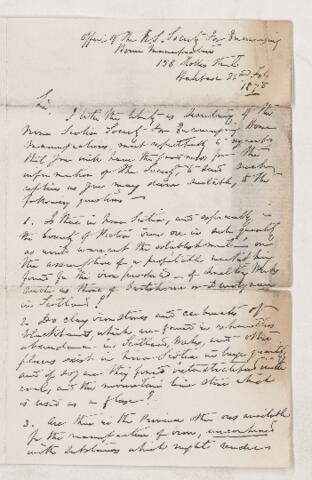 Office of the N.S. Society for Encouraging
Home Manufactures
156 Hollis Street
Halifax 22nd Feby
1878
Sir,
I take the liberty as Secretary of the
Nova Scotia Society for Encouraging Home
Manufactures, most respectfully to request
that you will have the goodness, for the
information of the Society, to send such
replies as you may deem suitable, to the
following questions —
1. Is there in Nova Scotia, and especially in
the County of Pictou iron ore in such quantity
as would warrant the establishment, on
the assumption of a profitable market being
found for the iron produced — of smelting Works
such as those of Gartsherrie or
in Scotland?
2. Do clay iron stones and carbonates of
blackband, which are found in exhaustless
abundance in Scotland, Wales, and other
places exist in Nova Scotia in large quantity
and if so, are they found interstratified with
coal, and the mountain lime stone which
is used as a flux?
3. Are there in the Province other ores available
for the manufacture of iron, uncombined
with substances which might render